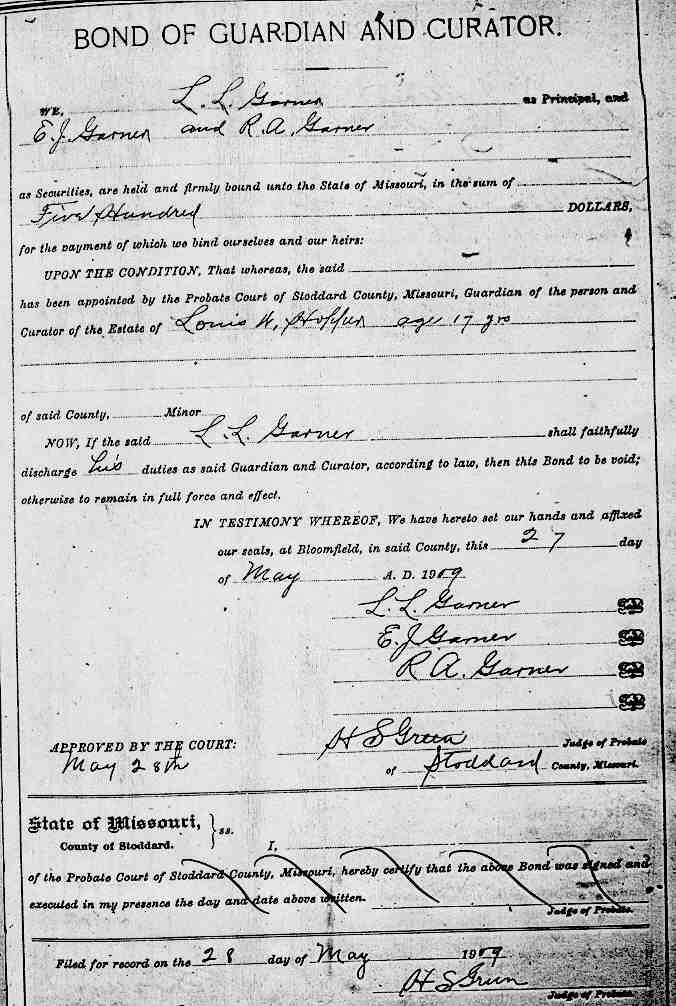 BOND OF GUARDIAN AND CURATOR.
WE, L. L. Garner as Principal, and
E. J. Garner and R. A. Garner
as Securities, are held and firmly bound unto the State of Missouri, in the sum of
Five Hundred DOLLARS,
for the payment of which we bind ourselves and our heirs:
UPON THE CONDITION, That whereas, the said
has been appointed by the Probate Court of Stoddard County, Missouri, Guardian of the person and
Curator of the Estate of Louis W. age 17 yrs
of said County, Minor
NOW, If the said L. L. Garner shall faithfully
discharge his duties as said Guardian and Curator, according to law, then this Bond to be void;
otherwise to remain in full force and effect.
IN TESTIMONY WHEREOF, We have hereto set our hands and affixed
our seals, at Bloomfield, in said County, this 27 day
of May A. D. 1909
L. L. Garner
E. J. Garner
R. A. Garner
APPROVED BY THE COURT: H S Green Judge of Probate
May 28th of Stoddard County, Missouri.
State of Missouri, } ss.
County of Stoddard. I,
of the Probate Court of Stoddard County, Missouri, hereby certify that the above Bond was signed and
executed in my presence the day and date above written.
Judge of Probate.
Filed for record on the 28 day of May 1909
H S Green
Judge of Probate.